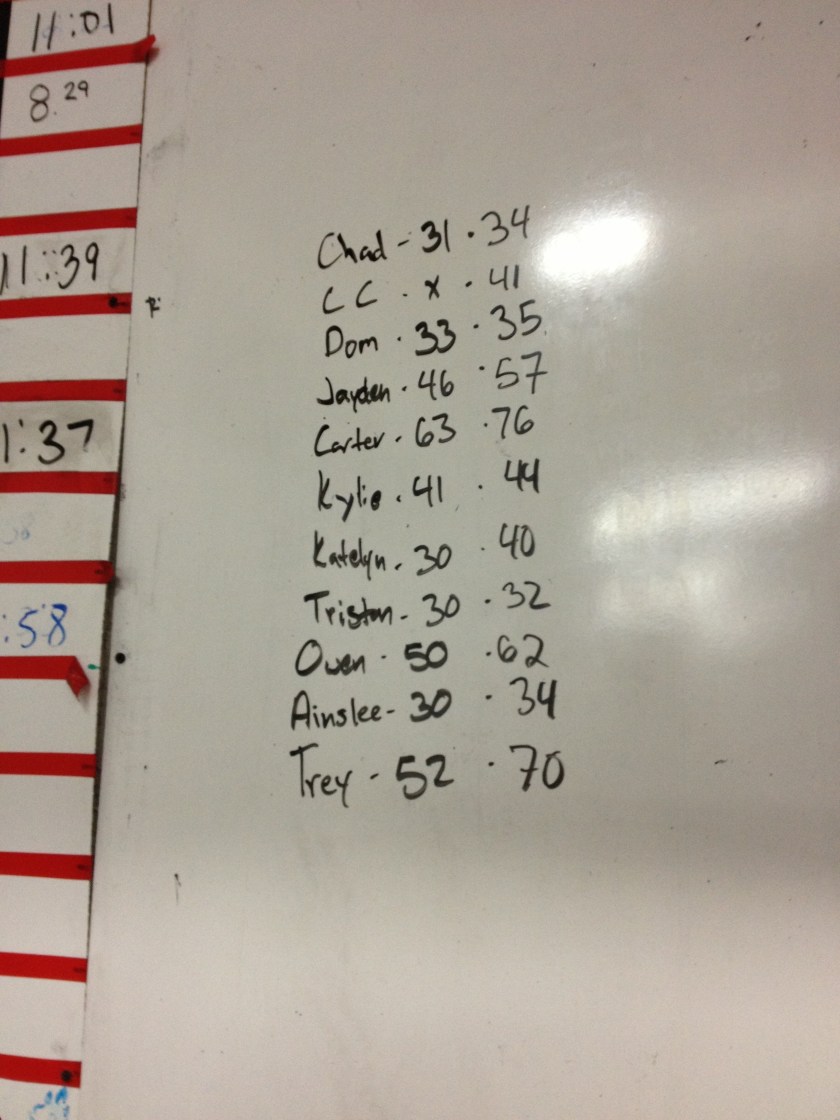 11:01
8.29
11:39
1:37
:58
Chad - 31 · 34
CC · x · 41
Dom · 33 · 35
Jayden · 46 · 57
Carter · 63 · 76
Kylie · 41 · 44
Katelyn · 30 · 40
Triston - 30 · 32
Owen · 50 · 62
Ainslee - 30 · 34
Trey - 52 · 70